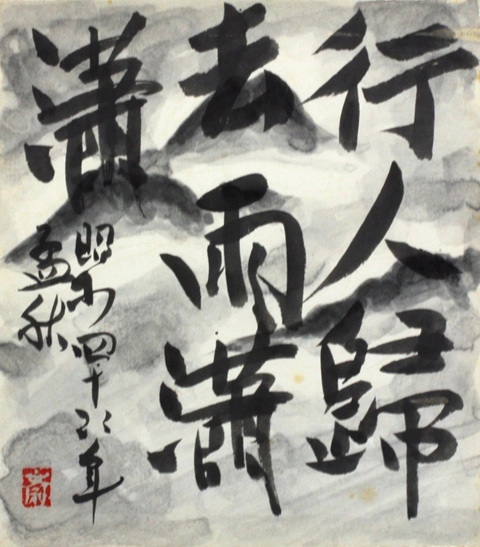 行人歸
去雨瀟
瀟
昭和四十六年
孟秋